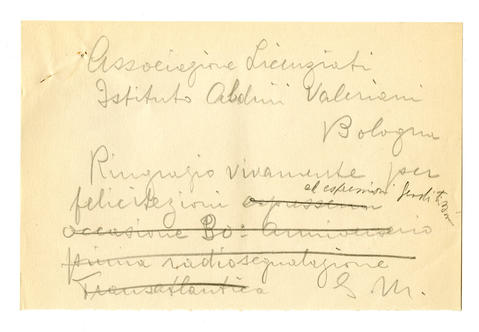 Associazione Licenziati
Istituto Aldini Valeriani
Bologna
Ringrazio vivamente per
ed espressioni
felicitazioni espressemi
occasione 30º anniversario
prima radiosegnalazione
Transatlantica G. M.